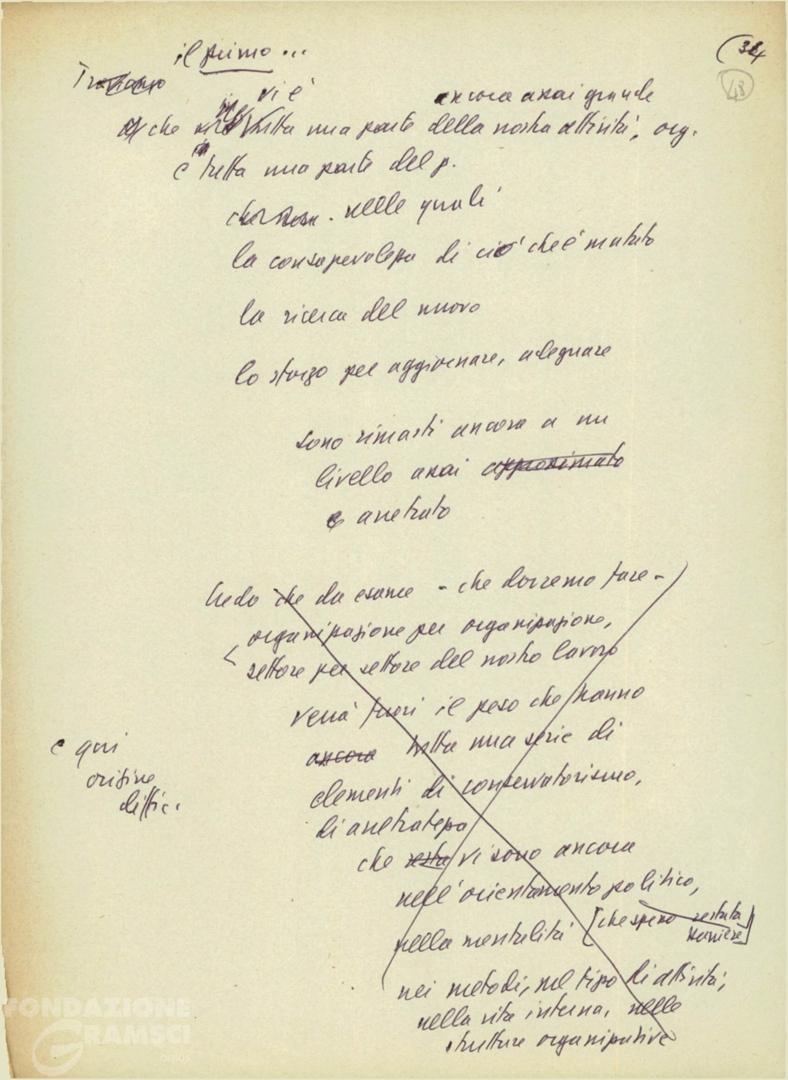 il primo...
(34
48
vi è
ancora assai grande
che tutta una parte della nostra attività, org.
e tutta una parte del p.
nelle quali
la consapevolezza di ciò che è mutato
la ricerca del nuovo
lo sforzo per aggiornare, adeguare
sono rimasti ancora a un
livello assai approssimato
e arretrato
Credo che da esame - che dovremo fare -
organizzazione per organizzazione,
settore per settore del nostro lavoro
verrà fuori il peso che hanno
ancora tutta una serie di
elementi di conservatorismo,
di arretratezza
e qui
origine
diffic.
che resta vi sono ancora
nell'orientamento politico,
nella mentalità [che spesso
nei metodi, nel tipo di attività,
nella vita interna, nelle
strutture organizzative
FONDAZIONE
GRAMSCI